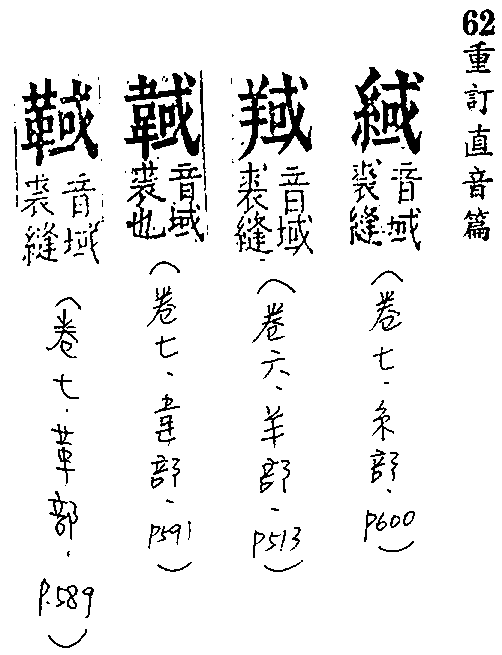 62 重訂直音篇
緎
音域
裘縫
(卷七、糸部、P600)
音域
裘縫
(卷六、羊部、P513)
音域
裘也
(卷七、韋部、P591)
音域
裘縫
(卷七、革部、P.589)